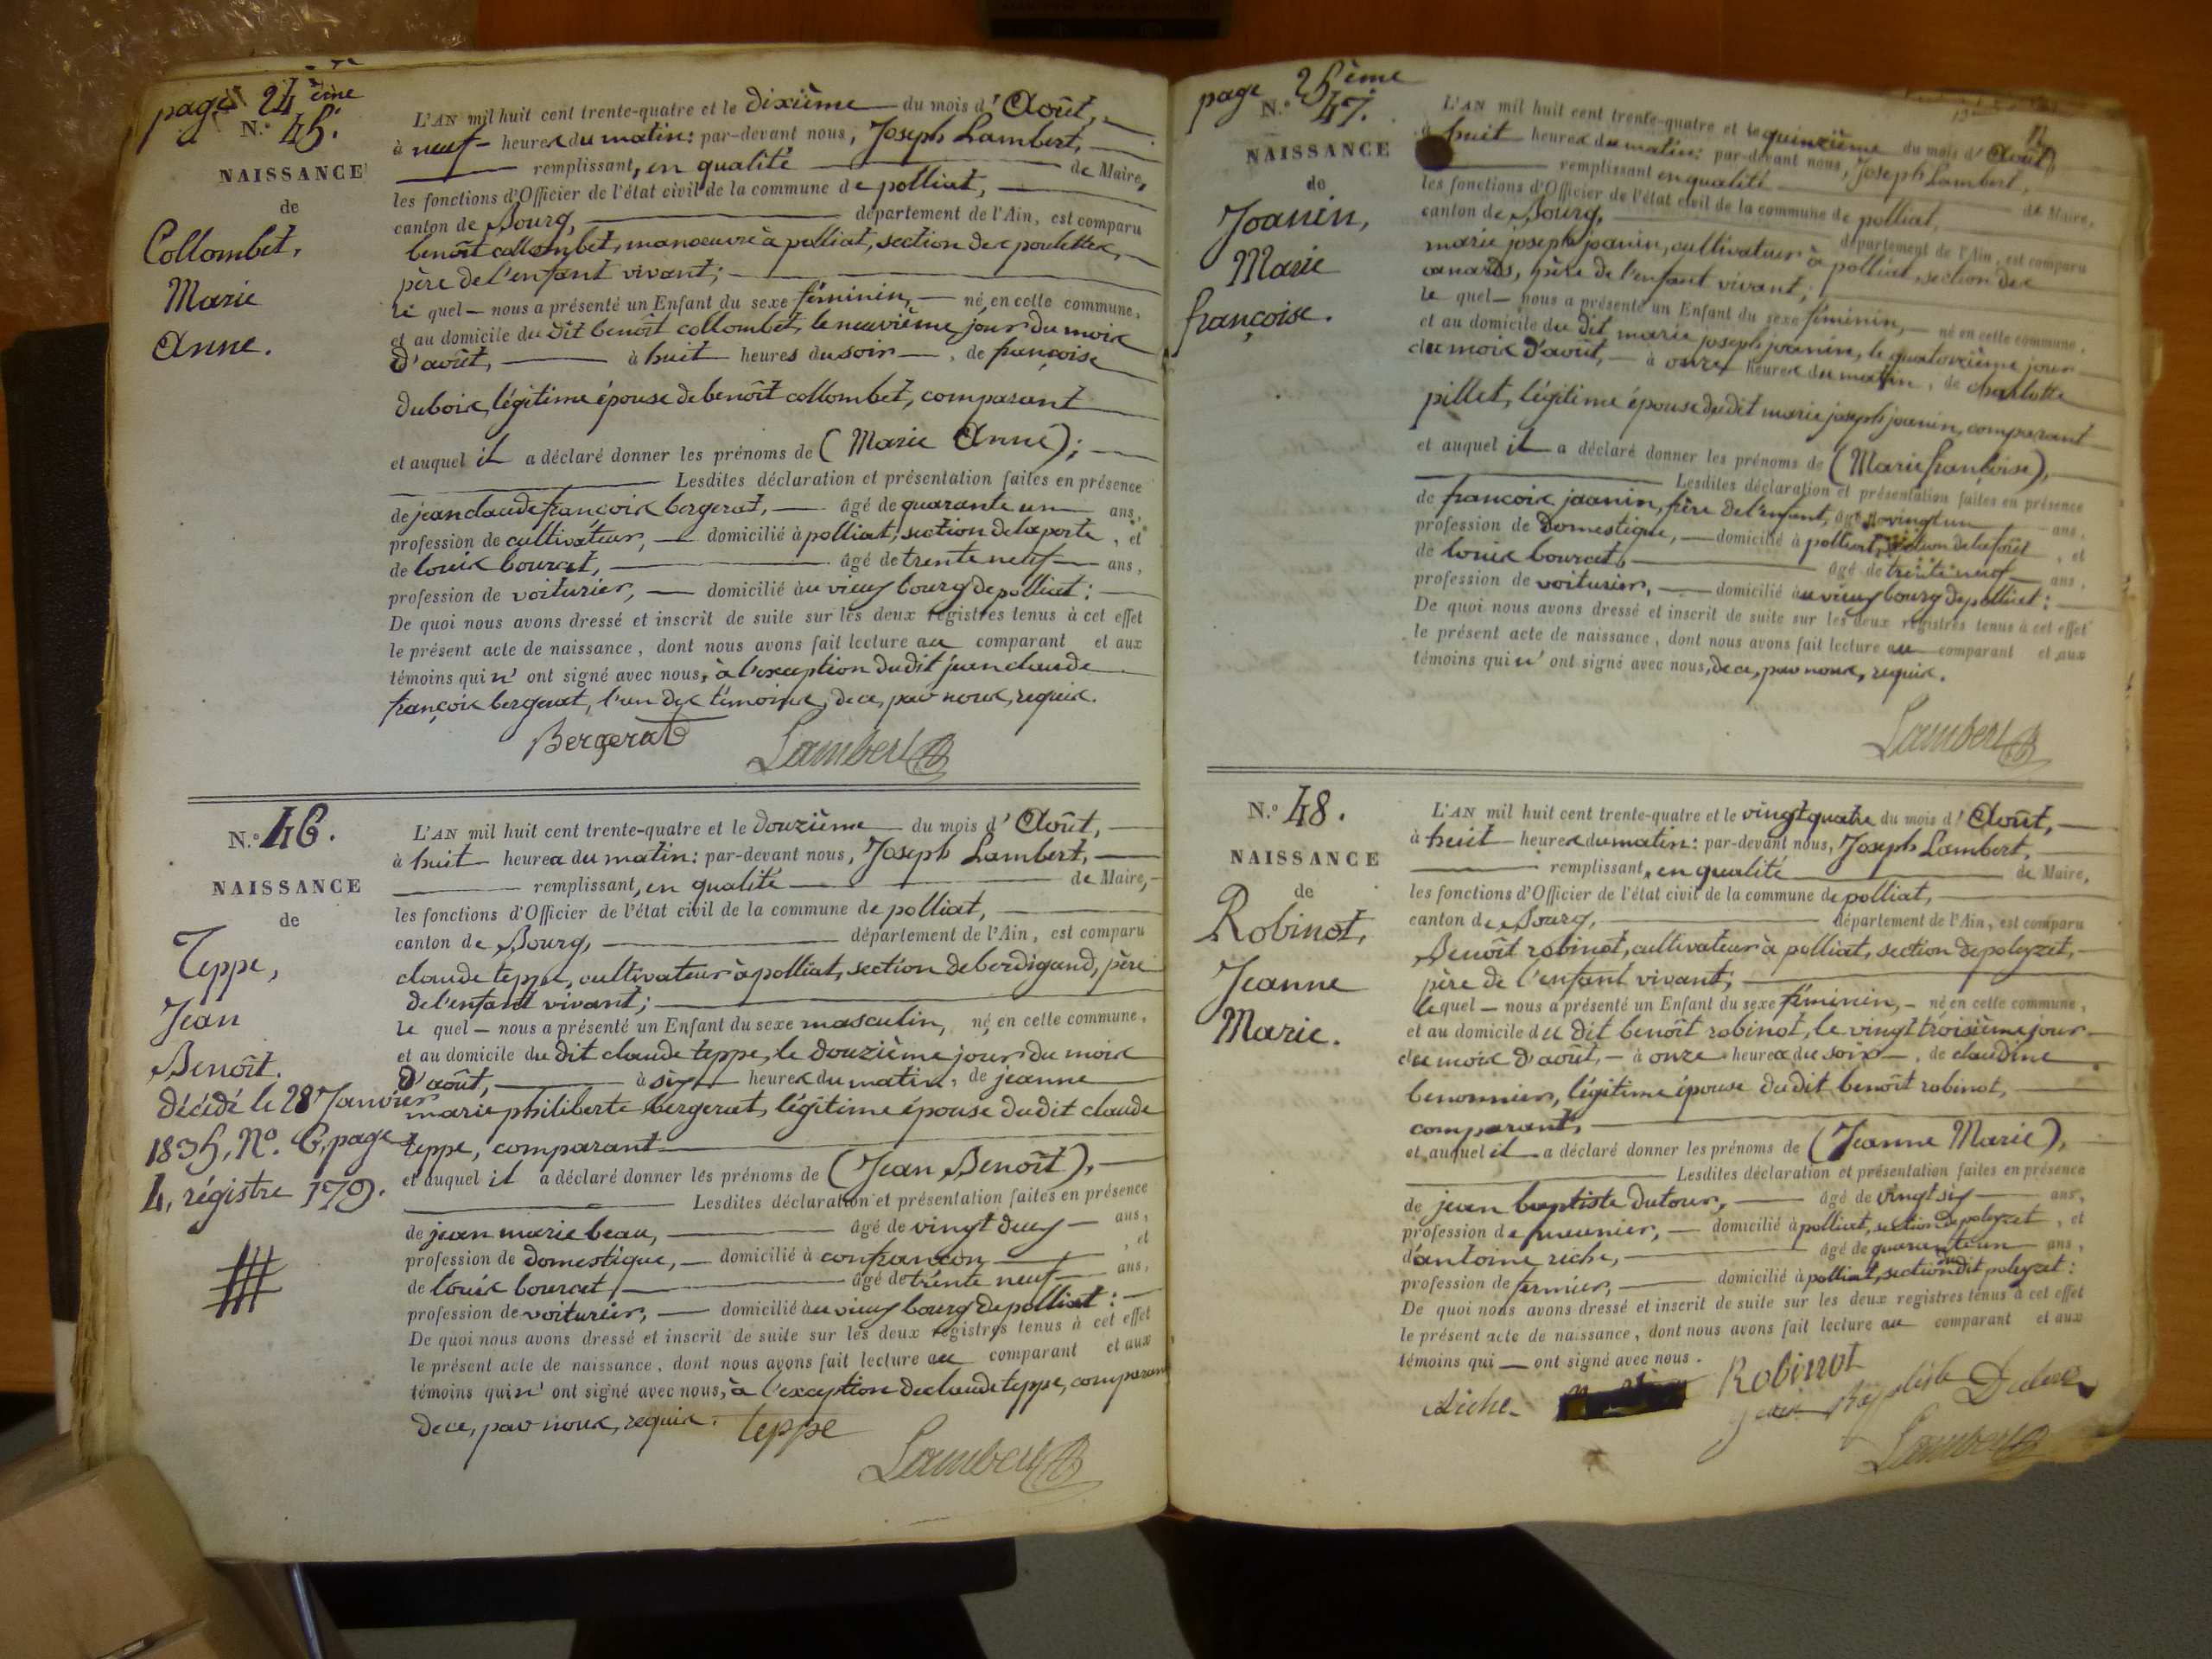 page 24ème
N.° 45.
NAISSANCE
de
Collombet,
Marie
Anne.
L'AN mil huit cent trente-quatre et le dixième du mois d'Août,
à neuf heures du matin: par-devant nous, Joseph Lambert,
remplissant, en qualité de Maire,
les fonctions d'Officier de l'état civil de la commune de polliat,
canton de Bourg, département de l'Ain, est comparu
benoît collombet, manoeuvre à polliat, section des poulettes,
père de l'enfant vivant;
le quel nous a présenté un Enfant du sexe féminin, né en cette commune,
et au domicile du dit benoît collombet, le neuvième jour du mois
d'août, à huit heures du soir, de françoise
dubois, légitime épouse de benoît collombet, comparant
et auquel il a déclaré donner les prénoms de (Marie Anne);
Lesdites déclaration et présentation faites en présence
de jean claude françois bergerat, âgé de quarante un ans,
profession de cultivateur, domicilié à polliat, section de la porte, et
de louis bourcet, âgé de trente neuf ans,
profession de voiturier, domicilié au vieux bourg de polliat:
De quoi nous avons dressé et inscrit de suite sur les deux registres tenus à cet effet
le présent acte de naissance, dont nous avons fait lecture au comparant et aux
témoins qui n'ont signé avec nous, à l'exception du dit jean claude
françois bergerat, l'un des témoins, de ce, par nous, requis.
Bergerat Lambert
N.° 46.
NAISSANCE
de
Teppe,
Jean
Benoît.
décédé le 28 Janvier
1835, N°. 6, page
4, régistre 179.
L'AN mil huit cent trente-quatre et le douzième du mois d'Août,
à huit heures du matin: par-devant nous, Joseph Lambert,
remplissant, en qualité de Maire,
les fonctions d'Officier de l'état civil de la commune de polliat,
canton de Bourg, département de l'Ain, est comparu
claude teppe, cultivateur à polliat, section de bordigand, père
de l'enfant vivant;
le quel nous a présenté un Enfant du sexe masculin, né en cette commune,
et au domicile du dit claude teppe, le douzième jour du mois
d'août, à six heures du matin, de jeanne
marie philiberte bergerat, légitime épouse du dit claude
teppe, comparant
et auquel il a déclaré donner les prénoms de (Jean Benoît),
Lesdites déclaration et présentation faites en présence
de jean marie beau, âgé de vingt deux ans,
profession de domestique, domicilié à confrançon, et
de louis bourcet, âgé de trente neuf ans,
profession de voiturier, domicilié au vieux bourg de polliat:
De quoi nous avons dressé et inscrit de suite sur les deux registres tenus à cet effet
le présent acte de naissance, dont nous avons fait lecture au comparant et aux
témoins qui n'ont signé avec nous, à l'exception de claude teppe, comparant
de ce, par nous, requis. teppe
Lambert
page 25ème
N.° 47.
NAISSANCE
de
Joanin,
Marie
françoise.
L'AN mil huit cent trente-quatre et le quinzième du mois d'Août
à huit heures du matin: par-devant nous, Joseph Lambert,
remplissant en qualité de Maire,
les fonctions d'Officier de l'état civil de la commune de polliat,
canton de Bourg, département de l'Ain, est comparu
marie joseph joanin, cultivateur à polliat, section des
canards, père de l'enfant vivant;
le quel nous a présenté un Enfant du sexe féminin, né en cette commune,
et au domicile du dit marie joseph joanin, le quatorzième jour
du mois d'août, à onze heures du matin, de charlotte
pillet, légitime épouse du dit marie joseph joanin, comparant
et auquel il a déclaré donner les prénoms de (Marie françoise),
Lesdites déclaration et présentation faites en présence
de françois joanin, frère de l'enfant, âgé de vingt un ans,
profession de domestique, domicilié à polliat, section de la forêt, et
de louis bourcet, âgé de trente neuf ans,
profession de voiturier, domicilié au vieux bourg de polliat:
De quoi nous avons dressé et inscrit de suite sur les deux registres tenus à cet effet
le présent acte de naissance, dont nous avons fait lecture au comparant et aux
témoins qui n'ont signé avec nous, de ce, par nous, requis.
Lambert
N.° 48.
NAISSANCE
de
Robinot,
Jeanne
Marie.
L'AN mil huit cent trente-quatre et le vingt quatre du mois d'Août,
à huit heures du matin: par-devant nous, Joseph Lambert,
remplissant, en qualité de Maire,
les fonctions d'Officier de l'état civil de la commune de polliat,
canton de Bourg, département de l'Ain, est comparu
Benoît robinot, cultivateur à polliat, section de polyzet,
père de l'enfant vivant;
le quel nous a présenté un Enfant du sexe féminin, né en cette commune,
et au domicile du dit benoît robinot, le vingt troisième jour
du mois d'août, à onze heures du soir, de claudine
benonnier, légitime épouse du dit benoît robinot,
comparant,
et auquel il a déclaré donner les prénoms de (Jeanne Marie),
Lesdites déclaration et présentation faites en présence
de jean baptiste dutour, âgé de vingt six ans,
profession de meunier, domicilié à polliat, section de polyzet, et
d'antoine riche, âgé de quarante un ans,
profession de fermier, domicilié à polliat, section dudit polyzet:
De quoi nous avons dressé et inscrit de suite sur les deux registres tenus à cet effet
le présent acte de naissance, dont nous avons fait lecture au comparant et aux
témoins qui ont signé avec nous.
Riche Robinot
Jean Baptiste
Lambert